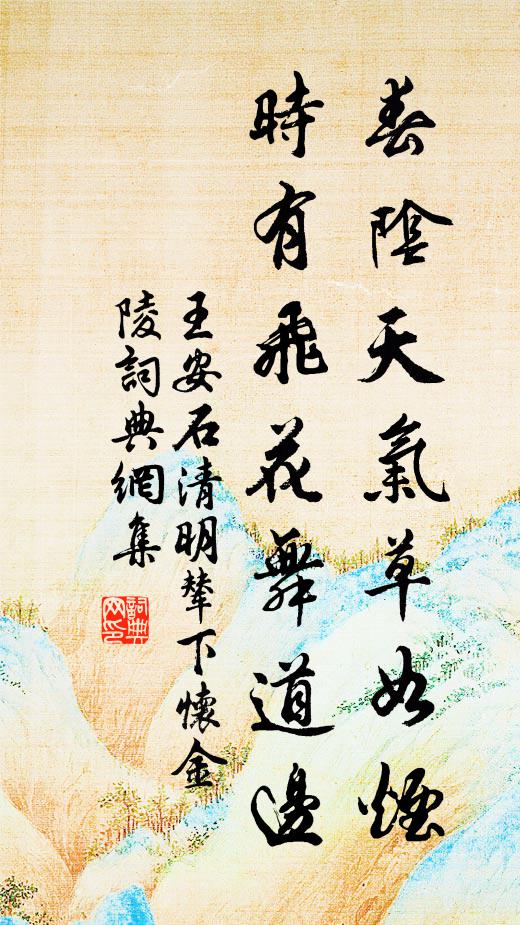 春陰天氣草如煙
時有飛花舞道邊
王安石清明輦下懷金
陵詞典網集
詞典
网印